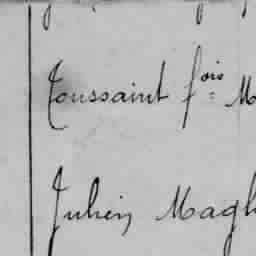 Toussaint fois M
Julien Magl